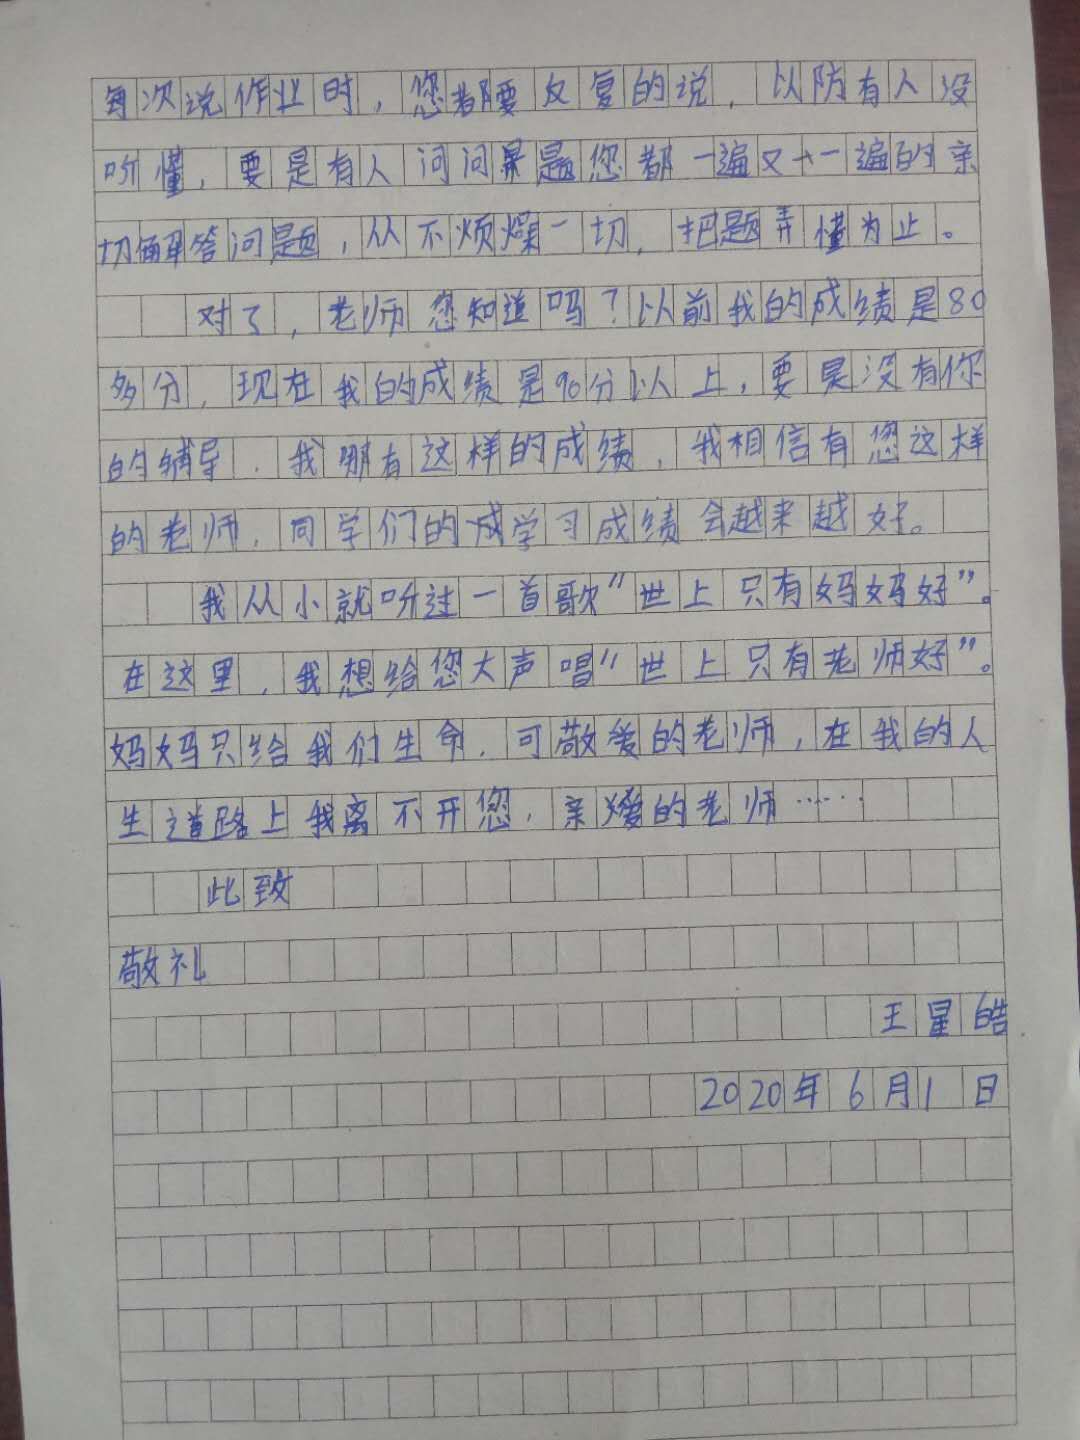 每次说作业时，您都要反复的说，以防有人没
听懂，要是有人问问题您都一遍又一遍的亲
切解答问题，从不烦燥一切，把题弄懂为止。
对了，老师您知道吗？以前我的成绩是80
多分，现在我的成绩是90分以上，要是没有你
的辅导，我哪有这样的成绩，我相信有您这样
的老师，同学们的成学习成绩会越来越好。
我从小就听过一首歌“世上只有妈妈好”。
在这里，我想给您大声唱“世上只有老师好”。
妈妈只给我们生命，可敬爱的老师，在我的人
生道路上我离不开您，亲爱的老师……
此致
敬礼
王星皓
2020年6月1日